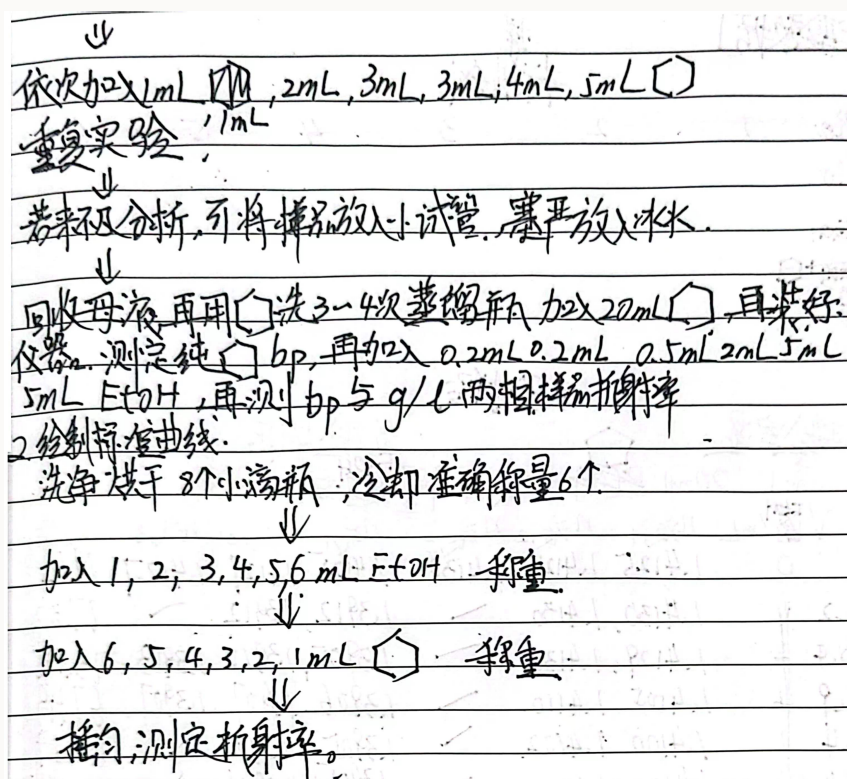 ⇓
依次加入1mL, 1mL, 2mL, 3mL, 3mL, 4mL, 5mL ⬡
重复实验,
⇓
若来不及分析,可将样品放入小试管,塞严放入冰水.
⇓
回收母液,再用⬡洗3~4次蒸馏瓶 加入20mL⬡,再装好
仪器. 测定纯⬡ bp,再加入 0.2mL 0.2mL 0.5mL 2mL 5mL
5mL EtOH,再测bp与g/l两相样品折射率
2 绘制标准曲线.
洗净烘干 8个小滴瓶,冷却 准确称量6个.
⇓
加入 1, 2, 3, 4, 5, 6 mL EtOH 称重
⇓
加入 6, 5, 4, 3, 2, 1mL ⬡ 称重
⇓
摇匀,测定折射率。